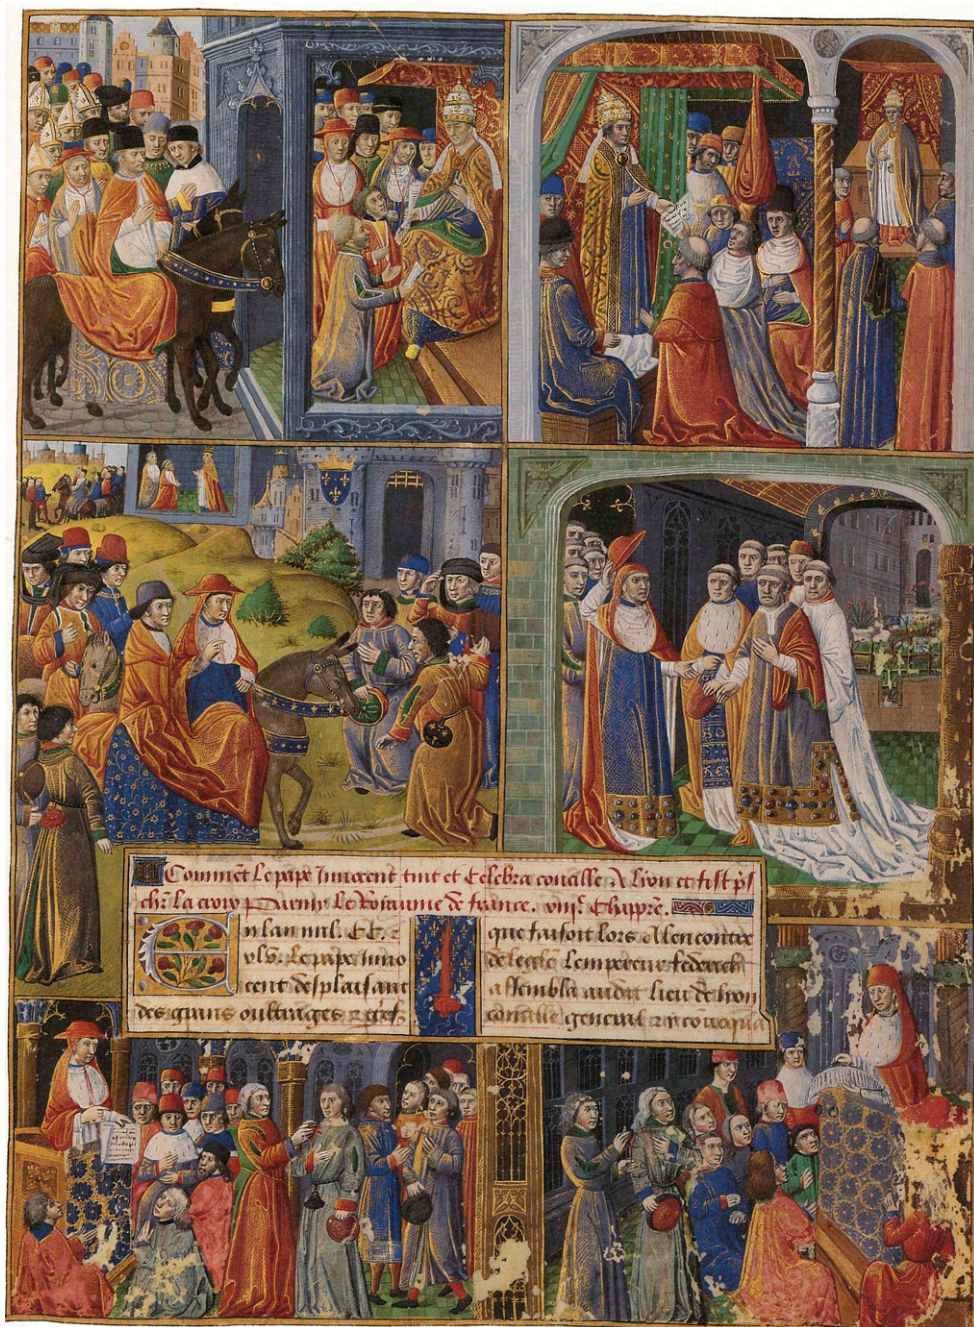 Comment le pape Innocent tint et celebra concille A lion et fist p̃s
chr̃ la croix Parmy le Royaume de france. viiĩ. Chappr̃e.
En lan mil. CC.
vlv. le pape Inno
cent desplaisant
des grans oultrages et griefz
que faisoit lors Alencontre
de leglise lempereur federich
assembla audit lieu de lyon
concille general